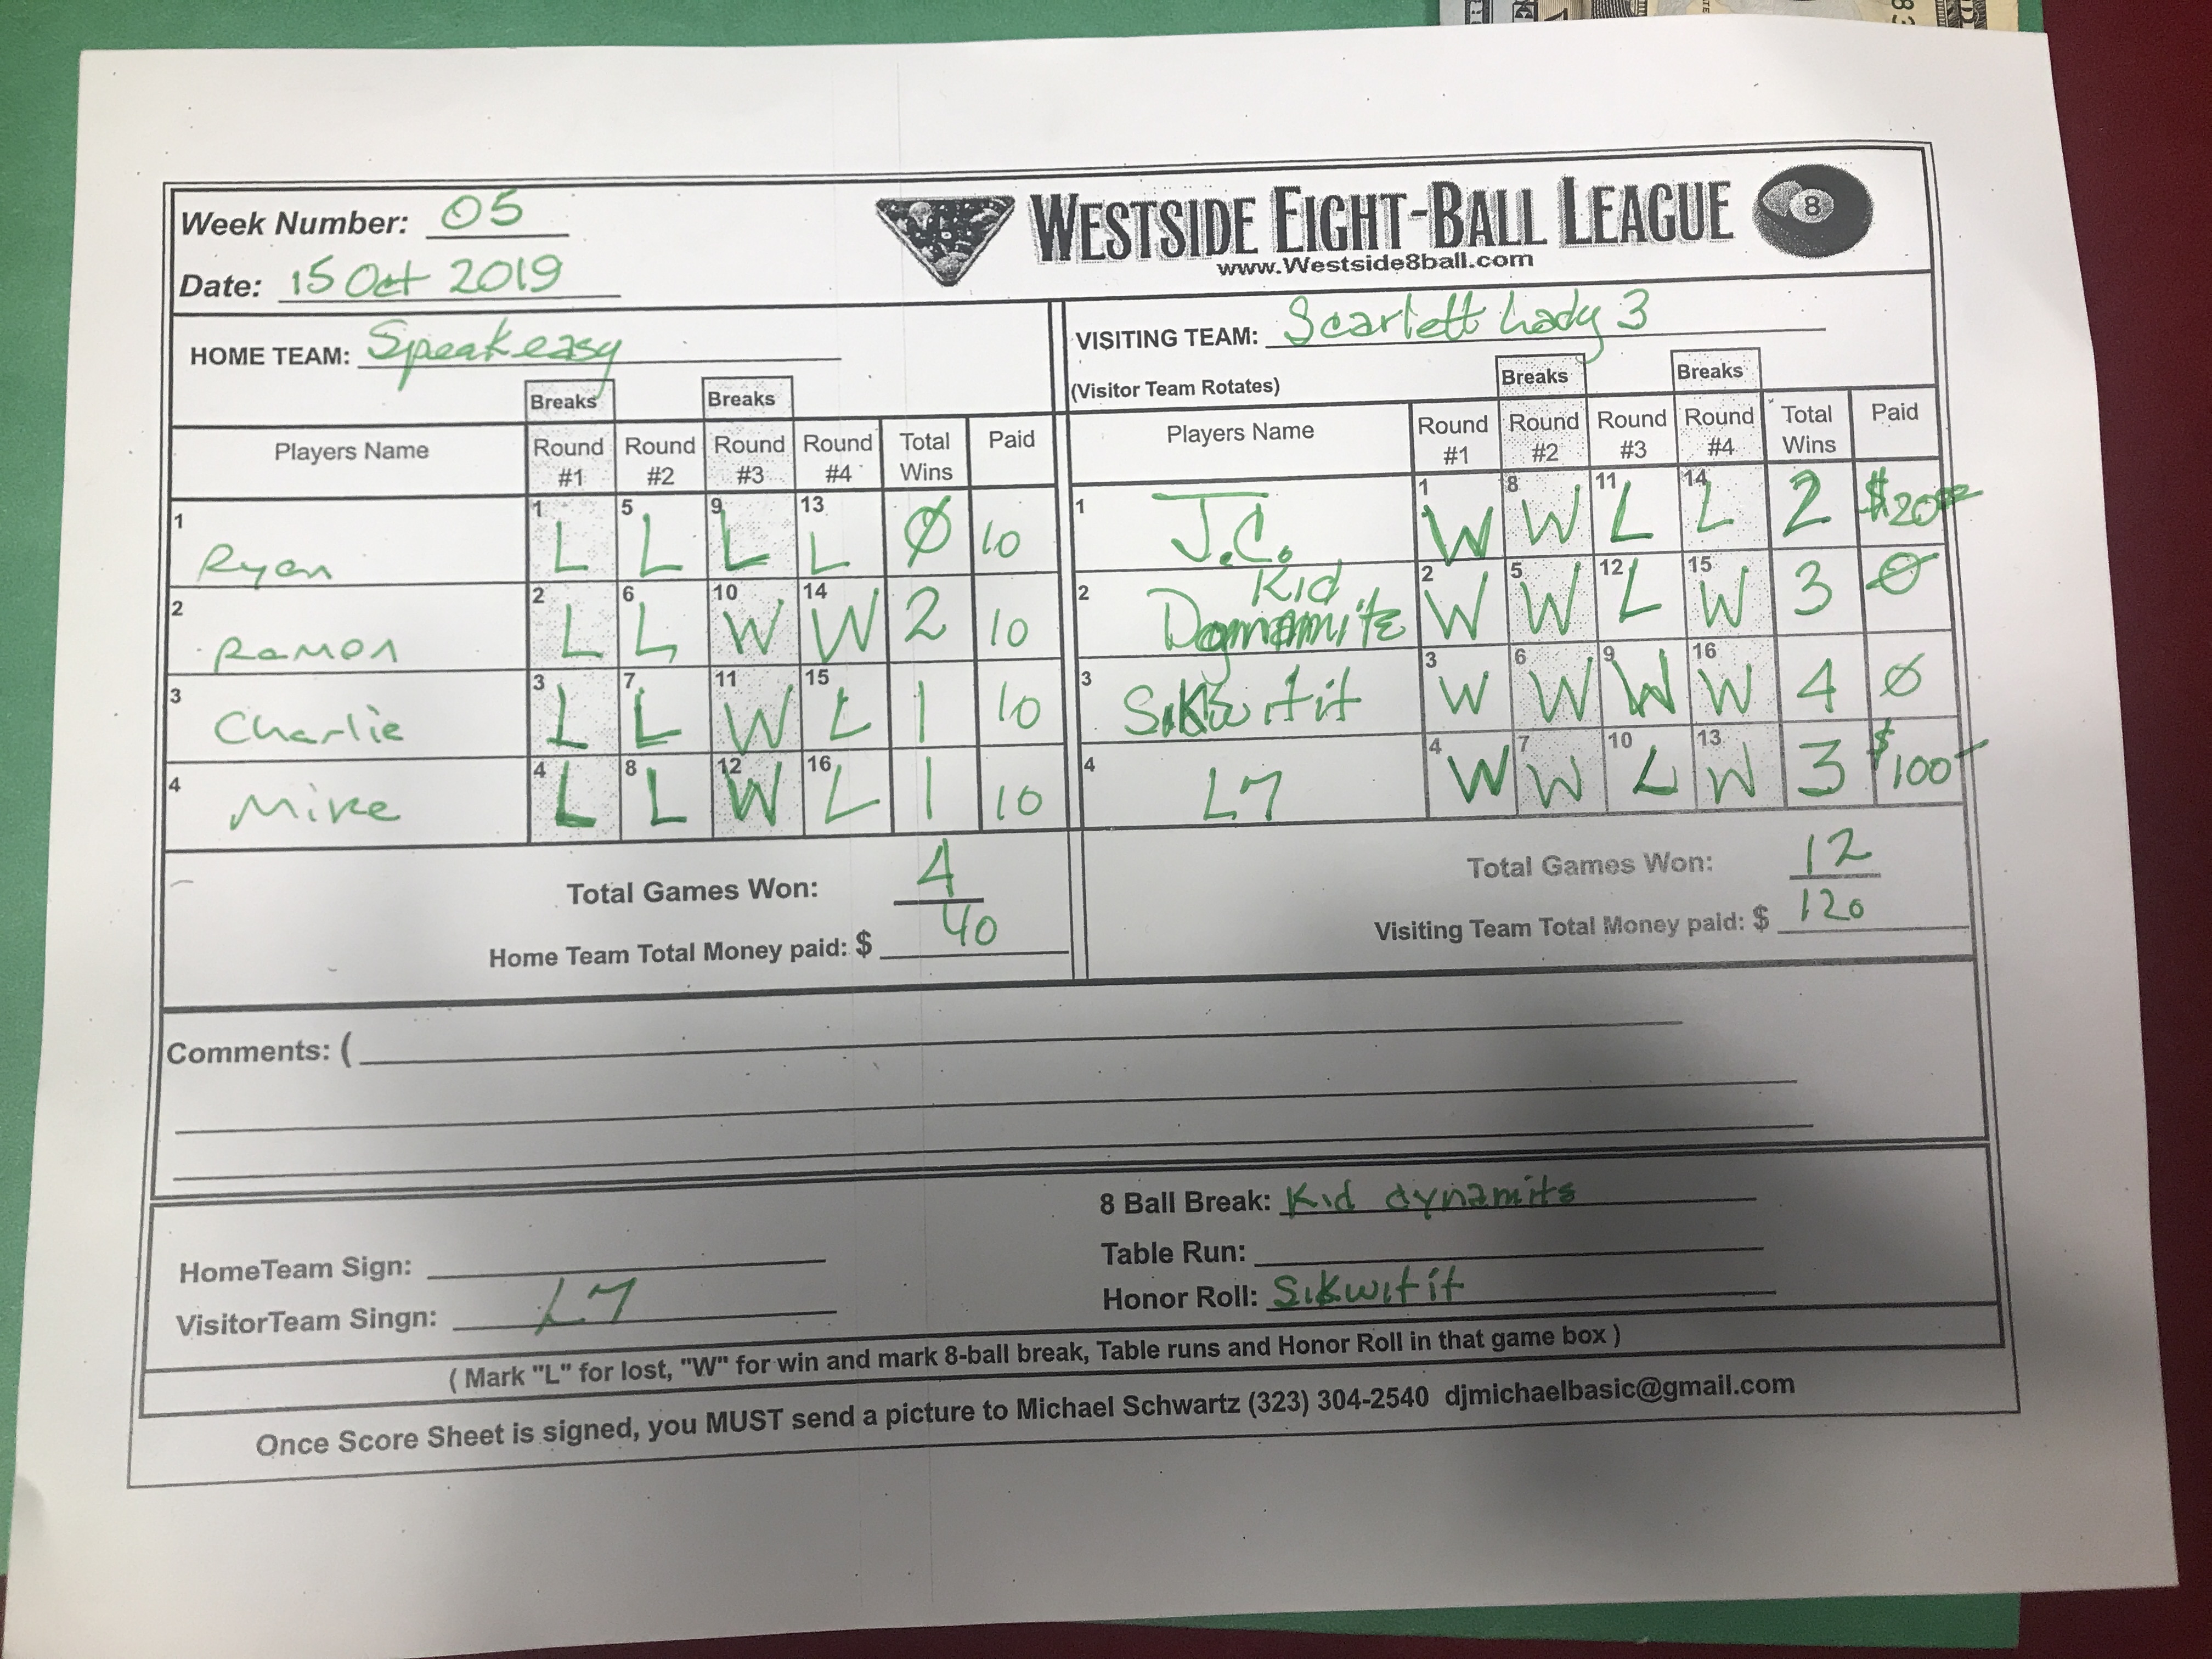 Week Number: 05
Date: 15 Oct 2019
WESTSIDE EIGHT-BALL LEAGUE
8
www.Westside8ball.com
HOME TEAM: Speakeasy
VISITING TEAM: Scarlett Lady 3
(Visitor Team Rotates)
Breaks Breaks Breaks Breaks
Players Name Round #1 Round #2 Round #3 Round #4 Total Wins Paid
1 Ryan 1 L 5 L 9 L 13 L Ø 10
2 Ramon 2 L 6 L 10 W 14 W 2 10
3 Charlie 3 L 7 L 11 W 15 L 1 10
4 Mike 4 L 8 L 12 W 16 L 1 10
Total Games Won: 4
Home Team Total Money paid: $ 40
Players Name Round #1 Round #2 Round #3 Round #4 Total Wins Paid
1 J.C. 1 W 8 W 11 L 14 L 2 $20
2 Kid Dynamite 2 W 5 W 12 L 15 W 3 Ø
3 Sikwitit 3 W 6 W 9 W 16 W 4 Ø
4 L7 4 W 7 W 10 L 13 W 3 $100
Total Games Won: 12
Visiting Team Total Money paid: $ 120
Comments: (
8 Ball Break: Kid dynamite
Table Run:
Honor Roll: Sikwitit
HomeTeam Sign:
VisitorTeam Singn: L7
( Mark "L" for lost, "W" for win and mark 8-ball break, Table runs and Honor Roll in that game box )
Once Score Sheet is signed, you MUST send a picture to Michael Schwartz (323) 304-2540 djmichaelbasic@gmail.com